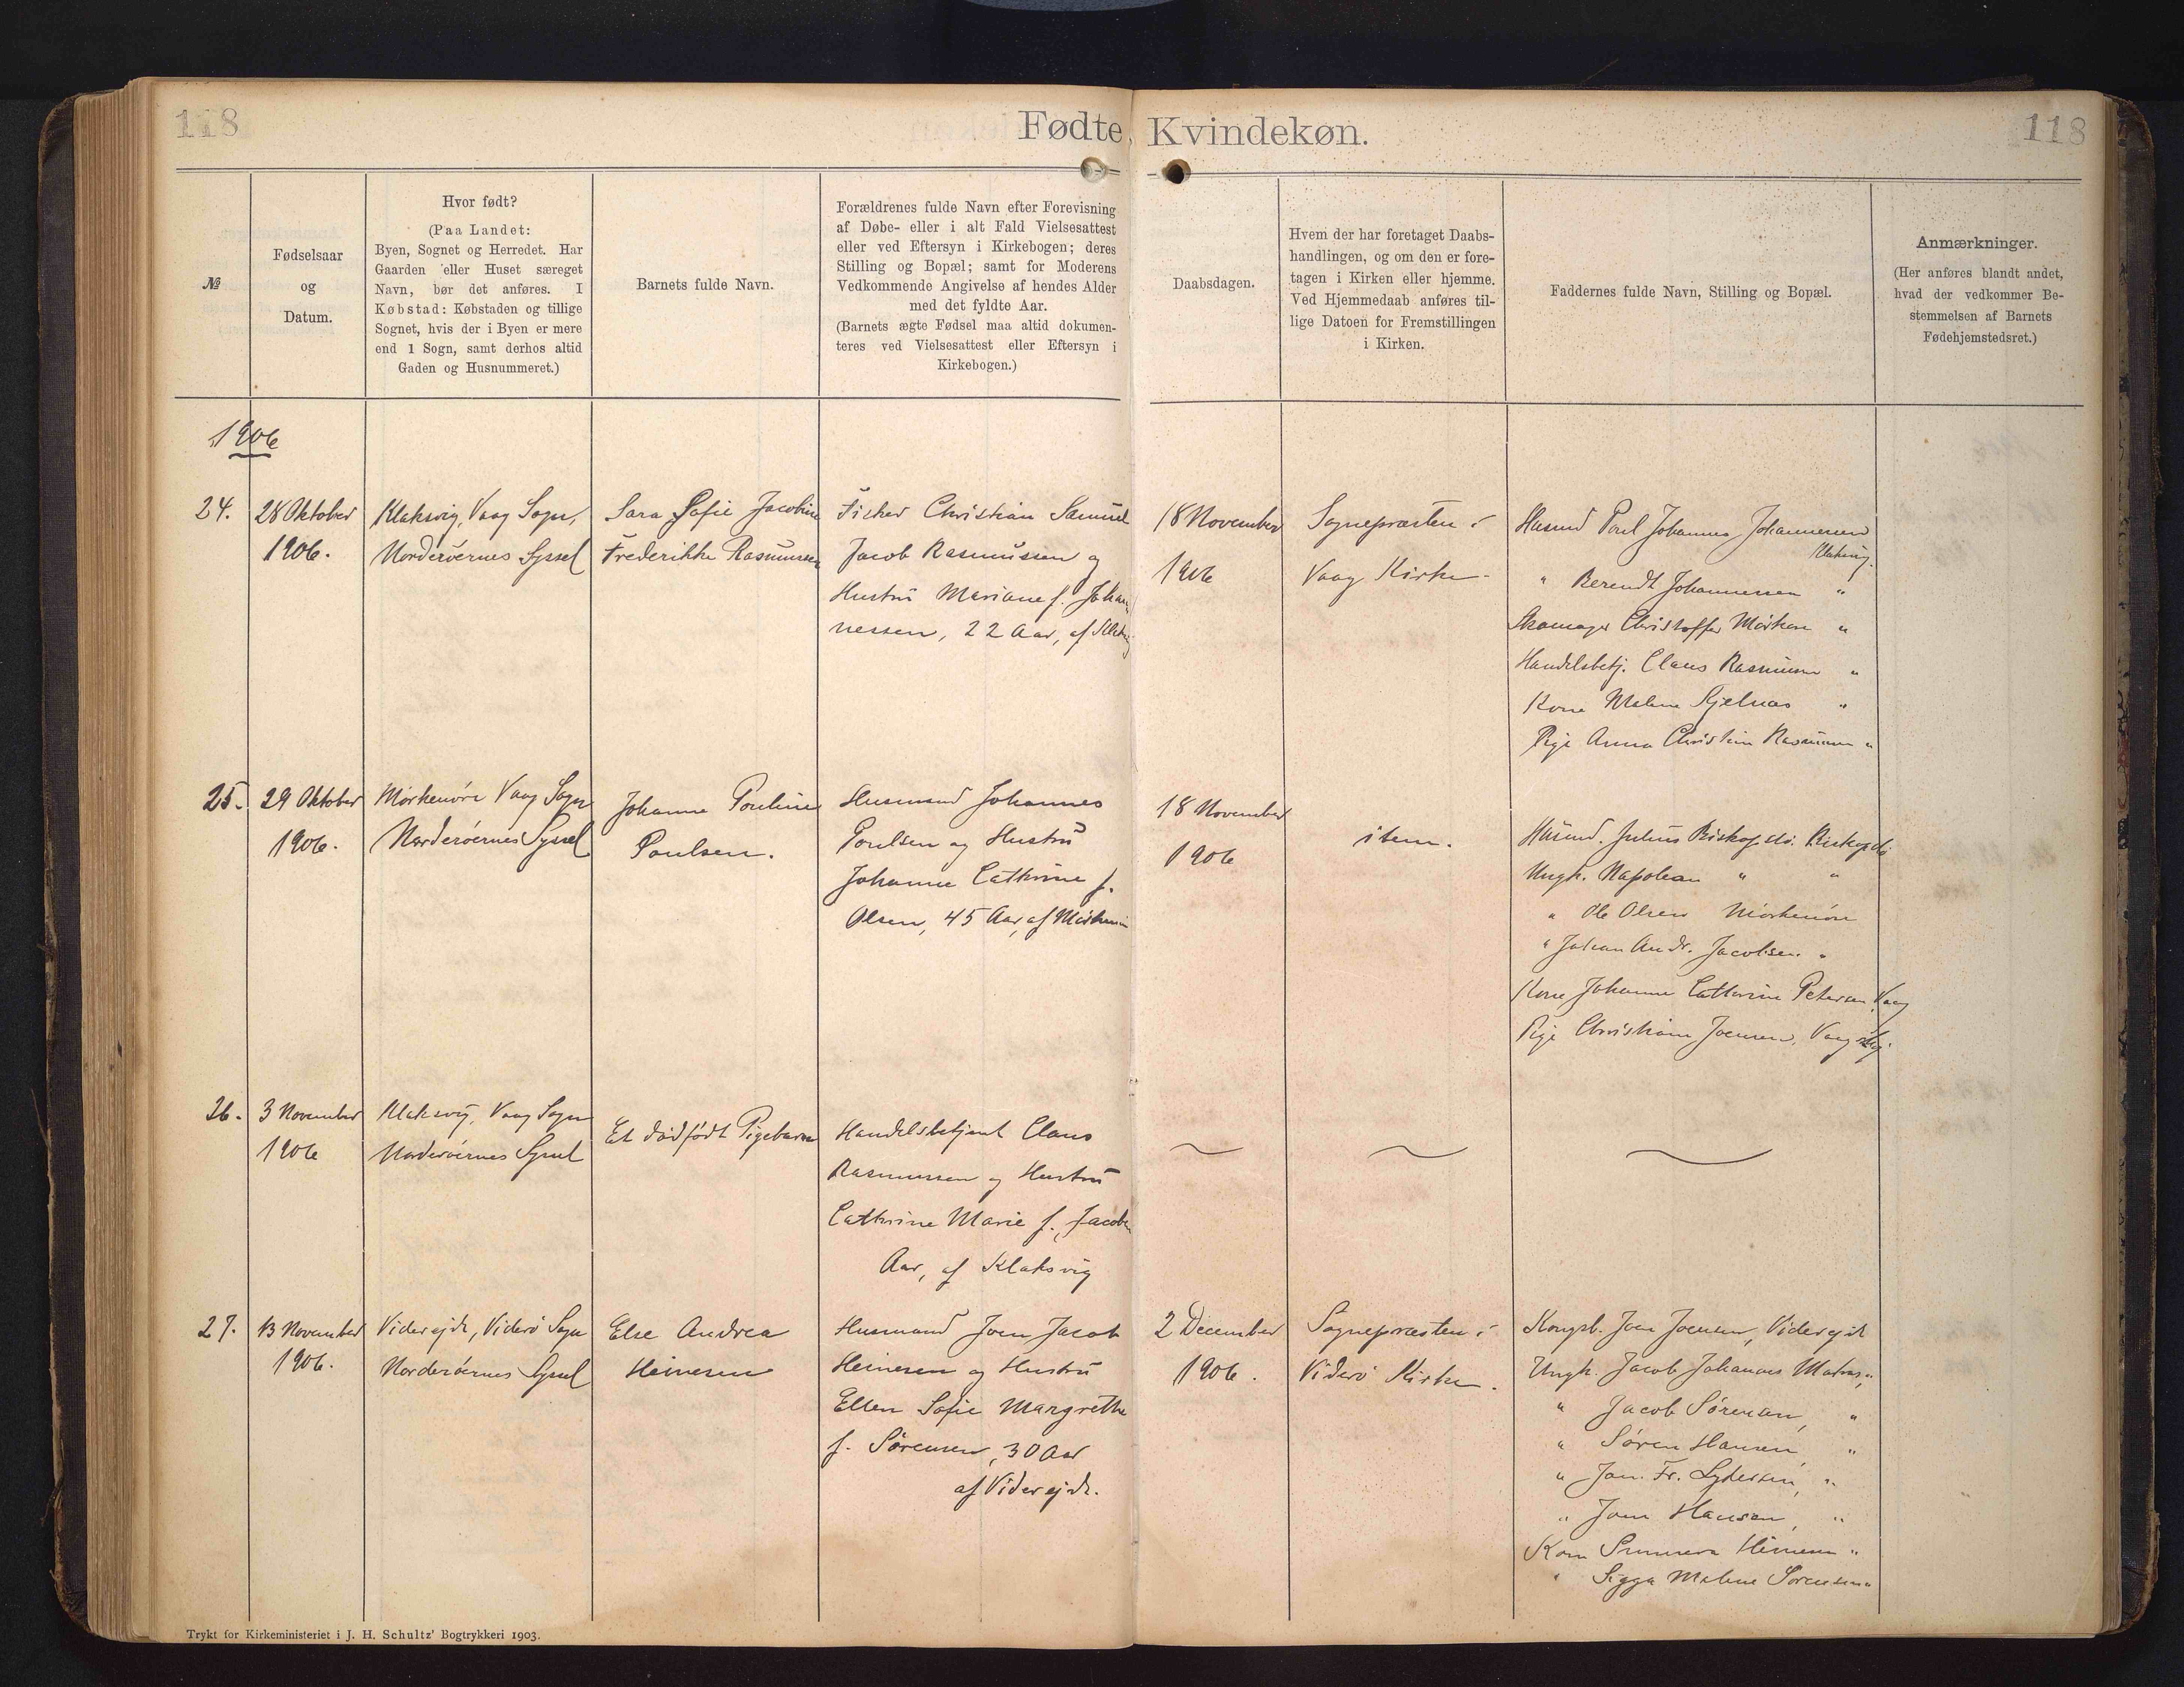 118
Fødte, Kvindekøn.
118
№
Fødselsaar
og
Datum.
Hvor født?
(Paa Landet:
Byen, Sognet og Herredet. Har
Gaarden eller Huset særeget
Navn, bør det anføres. I
Købstad: Købstaden og tillige
Sognet, hvis der i Byen er mere
end 1 Sogn, samt derhos altid
Gaden og Husnummeret.)
Barnets fulde Navn.
Forældrenes fulde Navn efter Forevisning
af Døbe- eller i alt Fald Vielsesattest
eller ved Eftersyn i Kirkebogen; deres
Stilling og Bopæl; samt for Moderens
Vedkommende Angivelse af hendes Alder
med det fyldte Aar.
(Barnets ægte Fødsel maa altid dokumen-
teres ved Vielsesattest eller Eftersyn i
Kirkebogen.)
Daabsdagen.
Hvem der har foretaget Daabs-
handlingen, og om den er fore-
tagen i Kirken eller hjemme.
Ved Hjemmedaab anføres til-
lige Datoen for Fremstillingen
i Kirken.
Faddernes fulde Navn, Stilling og Bopæl.
Anmærkninger.
(Her anføres blandt andet,
hvad der vedkommer Be-
stemmelsen af Barnets
Fødehjemstedsret.)
1906
24.
28 Oktober
1906.
Klaksvig, Vaag Sogn,
Norderöernes Syssel
Sara Sofie Jacobine
Frederikke Rasmussen
Fisker Christian Samuel
Jacob Rasmussen og
Hustru Mariane f. Johan
nessen, 22 Aar, af
18 November
1906
Sognepræsten i
Vaag Kirke.
Husmd Poul Johannes Johannesen
Klaksvig.
" Berendt Johannessen "
Skomager Christoffer Mörkøre "
Handelsbetj. Claus Rasmussen "
Kone Malene "
Pige Anna Christine Rasmussen "
25.
29 Oktober
1906.
Mörkenöre Vaag Sogn
Norderöernes Syssel
Johanne Pouline
Poulsen.
Husmand Johannes
Poulsen og Hustru
Johanne Cathrine f.
Olsen, 45 Aar, af
18 November
1906
item.
Husmd. Julius Biskopstö. Biskopstö
Ungk. Napolean " "
" Ole Olsen Mörkenöre
" Johan Andr. Jacobsen. "
Kone Johanne Cathrine Petersen Vaag
Pige Christiane Joensen, Vaag
26.
3 November
1906
Klaksvig, Vaag Sogn
Norderöernes Syssel
Et dödfödt Pigebarn
Handelsbetjent Claus
Rasmussen og Hustru
Cathrine Marie f. Jacobsen
Aar, af Klaksvig
27.
13 November
1906.
Viderejde, Viderö Sogn
Norderöernes Syssel
Else Andrea
Heinesen
Husmand Joen Jacob
Heinesen og Hustru
Ellen Sofie Margrethe
f. Sörensen, 30 Aar
af Viderejde.
2 December
1906.
Sognepræsten i
Viderö Kirke.
Kongsb. Joen Joensen, Viderejde
Ungk. Jacob Johannes Matras, "
" Jacob Sörensen, "
" Sören Hansen, "
" Joen. Fr. Lydersen, "
" Joen Hansen, "
Kone Sunneva Heinesen "
" Sigga Malene Sorensen "
Trykt for Kirkeministeriet i J. H. Schultz' Bogtrykkeri 1903.